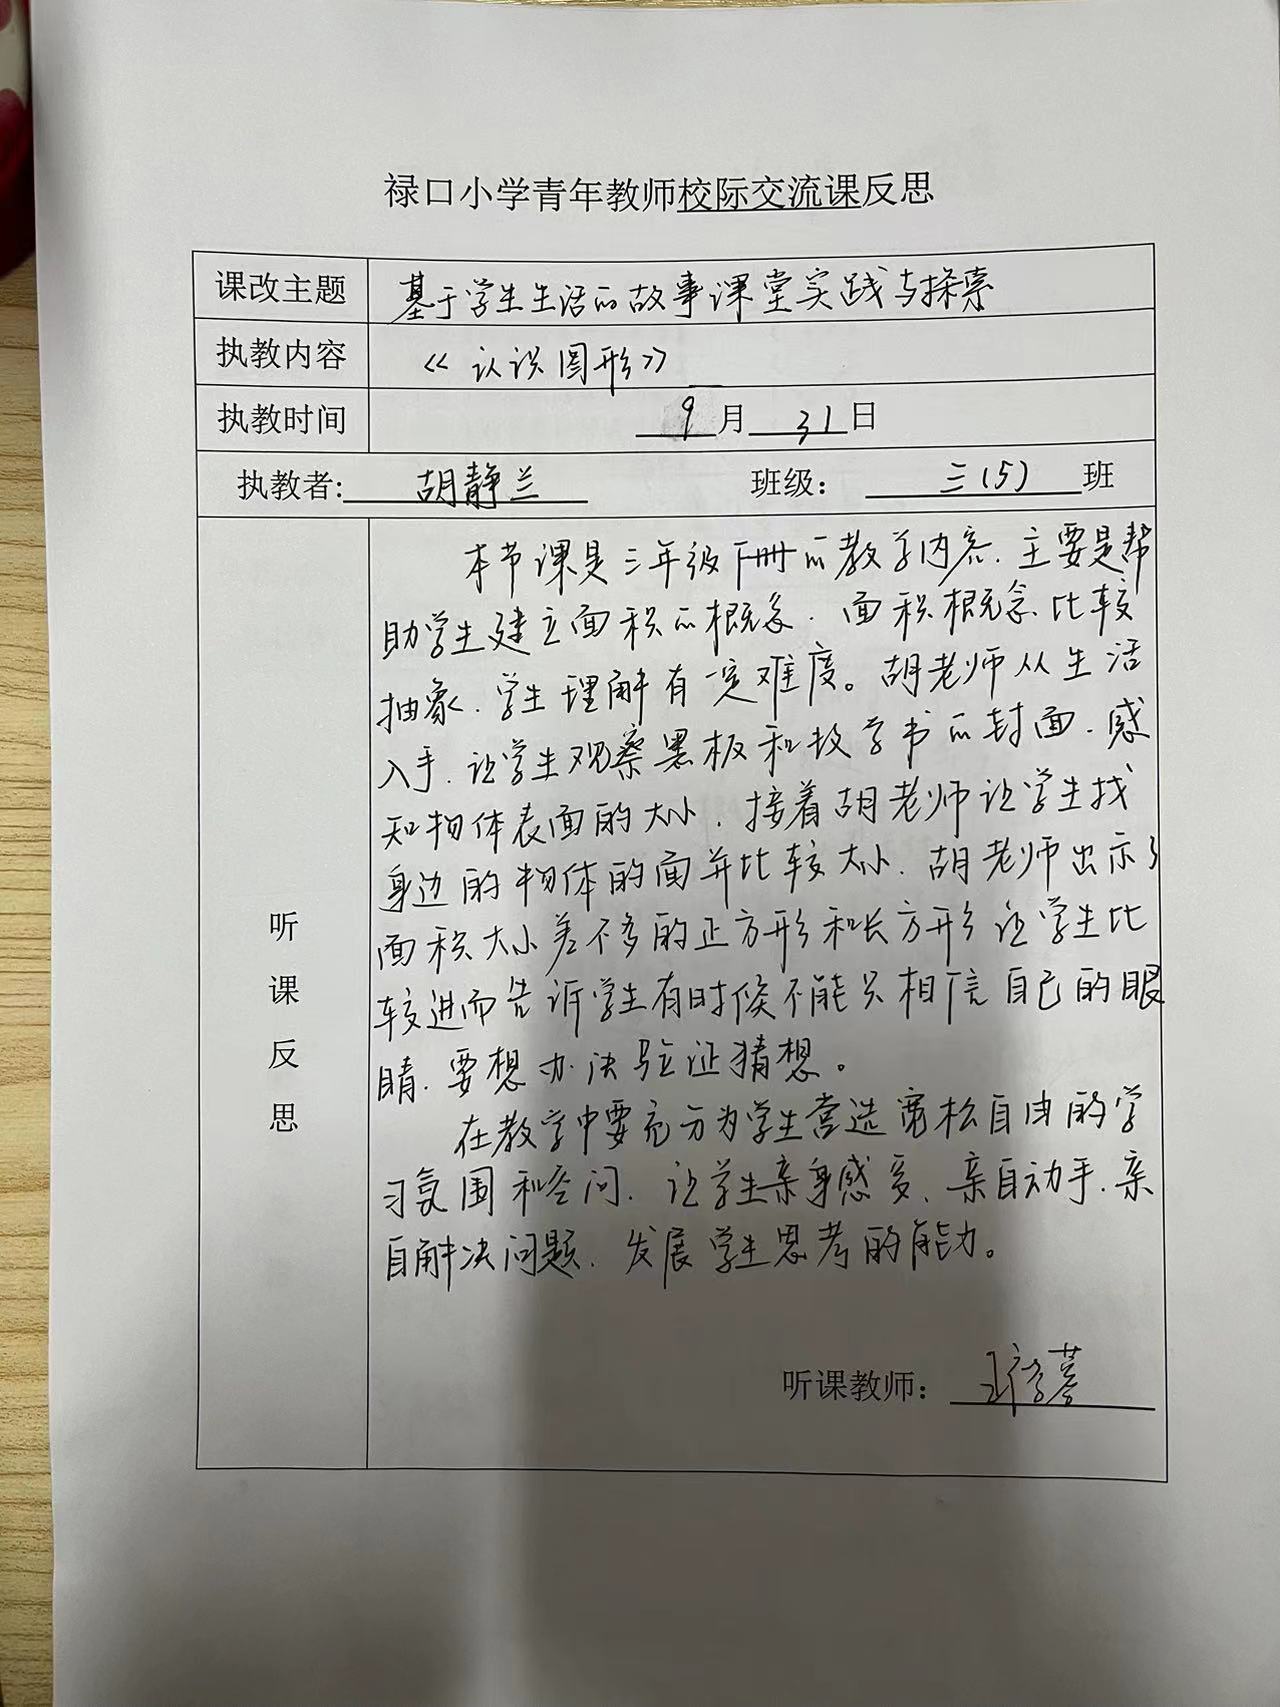 禄口小学青年教师校际交流课反思
课改主题 基于学生生活的故事课堂实践与探索
执教内容 《认识图形》
执教时间 9月31日
执教者: 胡静兰 班级: 三(5) 班
听课反思
本节课是三年级下册的教学内容.主要是帮
助学生建立面积的概念.面积概念比较
抽象.学生理解有一定难度。胡老师从生活
入手.让学生观察黑板和数学书的封面.感
知物体表面的大小.接着胡老师让学生找
身边的物体的面并比较大小.胡老师出示了
面积大小差不多的正方形和长方形让学生比
较进而告诉学生有时候不能只相信自己的眼
睛.要想办法验证猜想。
在教学中要充分为学生营造宽松自由的学
习氛围和空间.让学生亲身感受、亲自动手.亲
自解决问题.发展学生思考的能力。
听课教师: